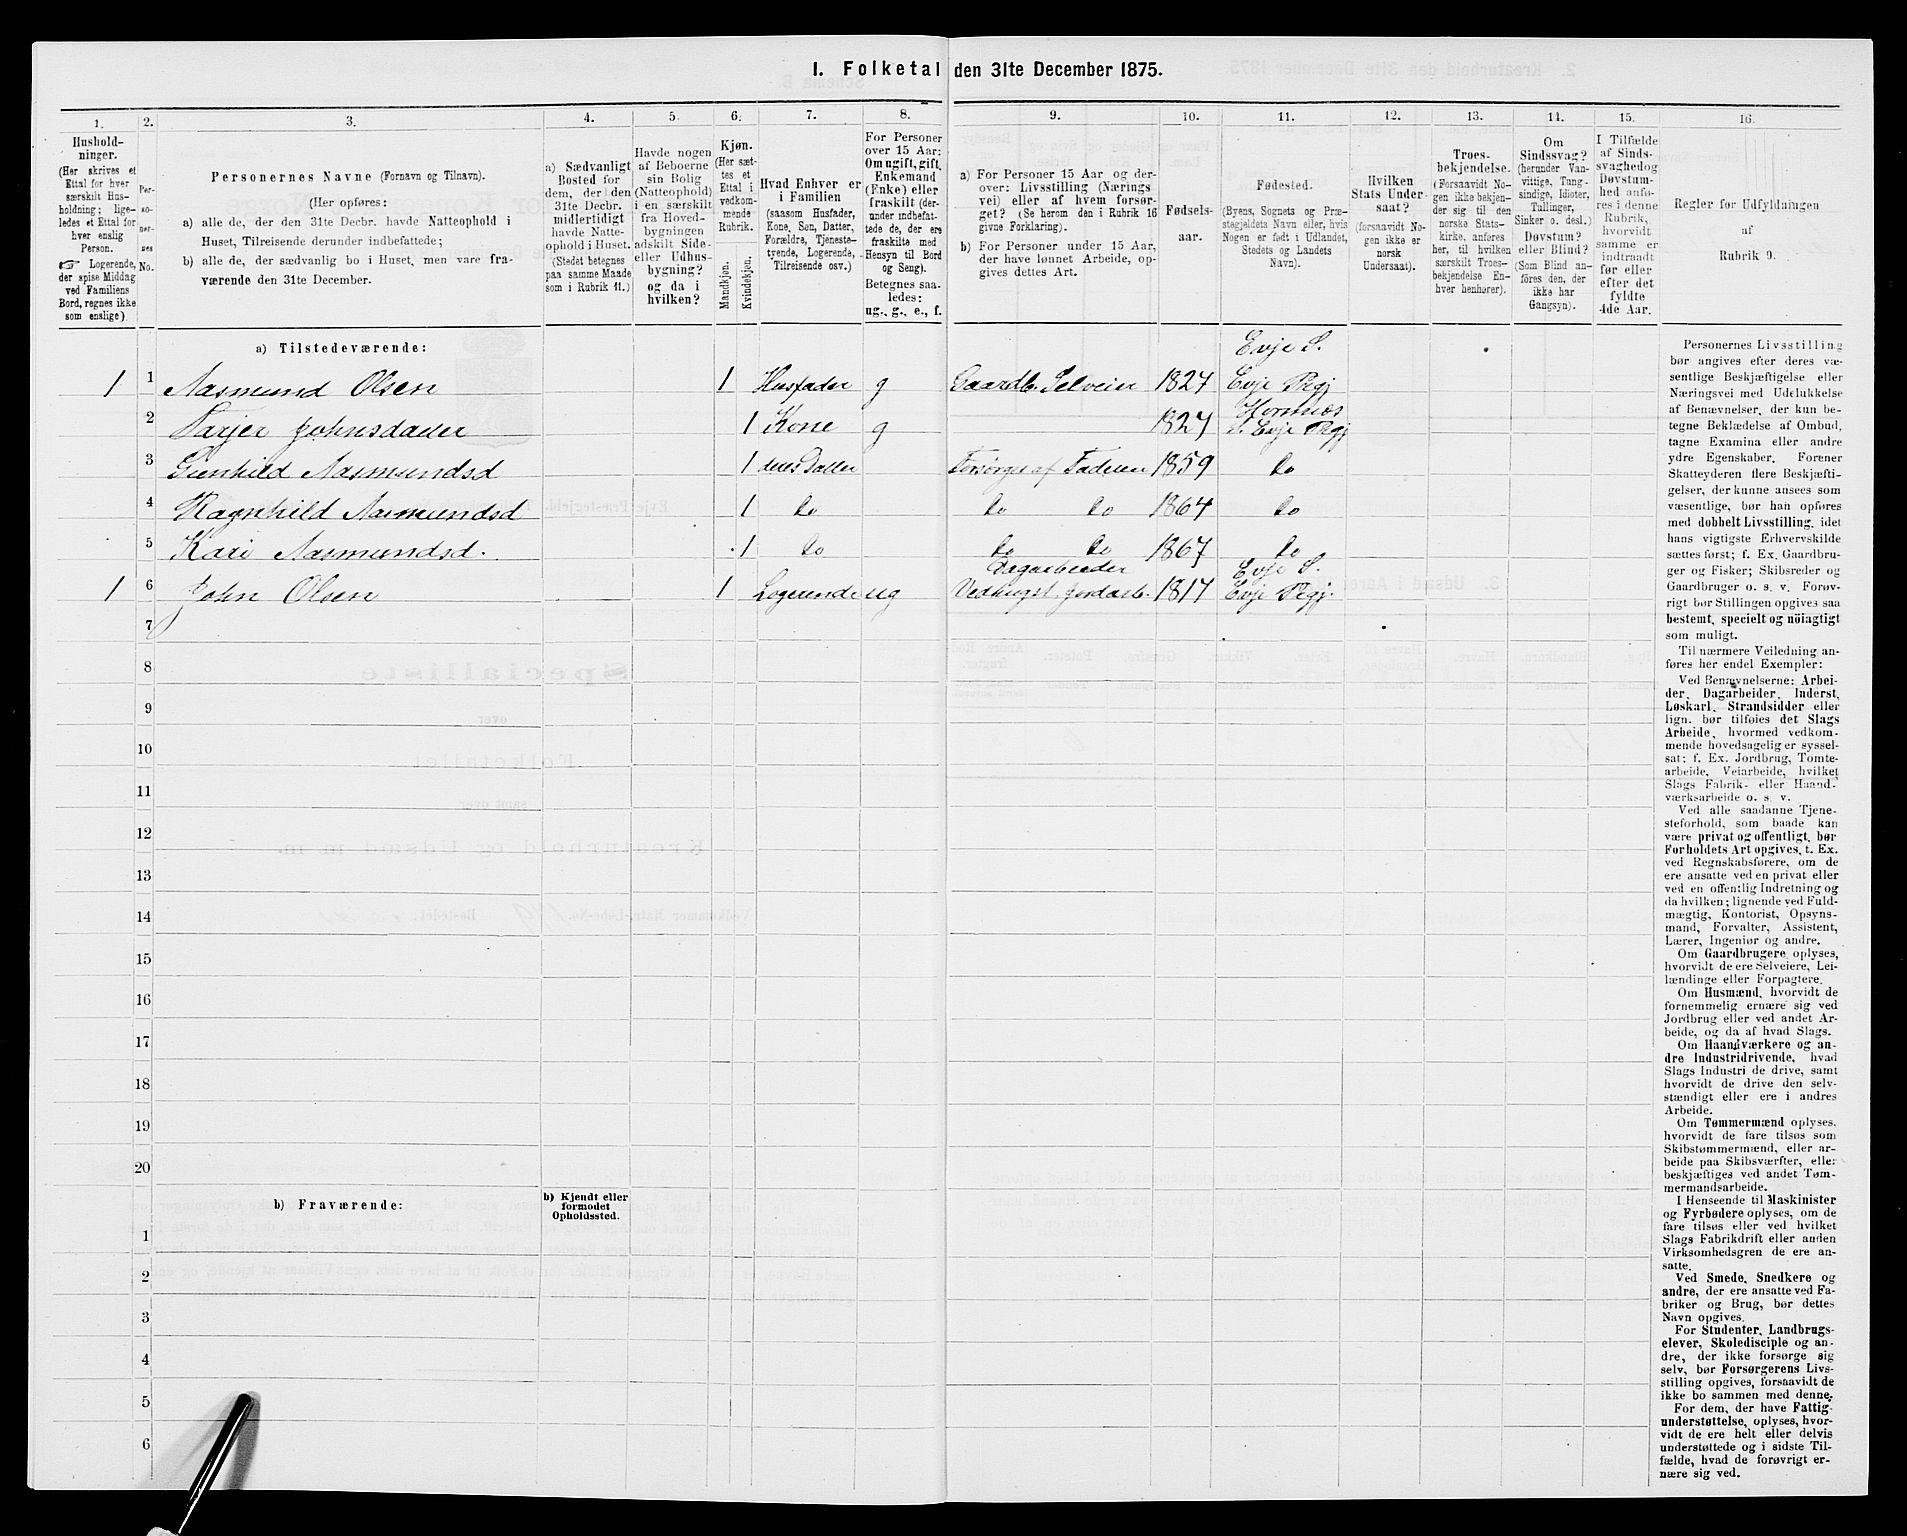 I. Folketal den 31te December 1875.
1.
2.
3.
4.
5.
6.
7.
8.
9.
10.
11.
12.
13.
14.
15.
16.
Hushold-
ninger.
(Her skrives et
Ettal for hver
særskilt Hus-
holdning; lige-
ledes et Ettal for
hver enslig
Person.
☞ Logerende,
der spise Middag
ved Familiens
Bord, regnes ikke
som enslige)
Per-
so-
ner-
nes
No.
Personernes Navne (Fornavn og Tilnavn).
(Her opføres:
a) alle de, der den 31te Decbr. havde Natteophold i
Huset, Tilreisende derunder indbefattede;
b) alle de, der sædvanlig bo i Huset, men vare fra-
værende den 31te December.
a) Sædvanligt
Bosted for
dem, der den
31te Decbr.
midlertidigt
havde Natte-
ophold i Huset.
(Stedet betegnes
paa samme Maade
som i Rubrik 11.)
Havde nogen
af Beboerne
sin Bolig
(Natteophold)
i en særskilt
fra Hoved-
bygningen
adskilt Side-
eller Udhus-
bygning?
og da i
hvilken?
Kjøn.
(Her sæt-
tes et
Ettal i
vedkom-
mende
Rubrik.
Mandkjøn.
Kvindekjøn.
Hvad Enhver er
i Familien
(saasom Husfader,
Kone, Søn, Datter,
Forældre, Tjeneste-
tyende, Logerende,
Tilreisende osv.)
For Personer
over 15 Aar:
Om ugift, gift,
Enkemand
(Enke) eller
fraskilt (der-
under indbefat-
tede de, der ere
fraskilte med
Hensyn til Bord
og Seng).
Betegnes saa-
ledes:
ug., g., e., f.
a) For Personer 15 Aar og der-
over: Livsstilling (Nærings
vei) eller af hvem forsør-
get? (Se herom den i Rubrik 16
givne Forklaring).
b) For Personer under 15 Aar,
der have lønnet Arbeide, op-
gives dettes Art.
Fødsels-
aar.
Fødested.
(Byens, Sognets og Præ-
stegjeldets Navn eller, hvis
Nogen er født i Udlandet,
Stedets og Landets
Navn).
Hvilken
Stats Under-
saat?
(forsaavidt No-
gen ikke er
norsk
Undersaat).
Troes-
bekjendelse.
(Forsaavidt No-
gen ikke bekjen-
der sig til den
norske Stats-
kirke, anføres
her, til hvilken
særskilt Troes-
bekjendelse En-
hver henhører).
Om
Sindssvag?
(herunder Van-
vittige, Tung-
sindige, Idioter,
Tullinger,
Sinker o. desl.)
Døvstum?
eller Blind?
(Som Blind an-
føres den, der
ikke har
Gangsyn).
I Tilfælde
af Sinds-
svaghedog
Døvstum-
hed anfø-
res i denne
Rubrik,
hvorvidt
samme er
indtraadt
før eller
efter det
fyldte
4de Aar.
Regler for Udfyldningen
af
Rubrik 9.
a) Tilstedeværende:
Evje S.
1 1 Aasmund Olsen 1 Husfader g Gaardb. Selveier 1827 Evje Prgj
Hornnæs
2 Tarjer Johnsdatter 1 Kone g 1827 S. Evje Prgj
3 Gunhild Aasmundsd 1 deres Datter Forsørges af Faderen 1859 do
4 Ragnhild Aasmundsd 1 do do do 1864 do
5 Kari Aasmundsd. 1 do do do 1867 do
Dagarbeider Evje S.
1 6 John Olsen 1 Logerende ug Vedhugst Jordarb. 1817 Evje Prgj.
7
8
9
10
11
12
13
14
15
16
17
18
19
20
b) Fraværende:
b) Kjendt eller
formodet
Opholdssted.
1
2
3
4
5
6
Personernes Livsstilling
bør angives efter deres væ-
sentlige Beskjæftigelse eller
Næringsvei med Udelukkelse
af Benævnelser, der kun be-
tegne Beklædelse af Ombud,
tagne Examina eller andre
ydre Egenskaber. Forener
Skatteyderen flere Beskjæfti-
gelser, der kunne ansees som
væsentlige, bør han opføres
med dobbelt Livsstilling, idet
hans vigtigste Erhvervskilde
sættes først; f. Ex. Gaardbru-
ger og Fisker; Skibsreder og
Gaardbruger o. s. v. Forøv-
rigt bør Stillingen opgives saa
bestemt, specielt og nøiagtigt
som muligt.
Til nærmere Veiledning an-
føres her endel Exempler:
Ved Benævnelserne: Arbei-
der, Dagarbeider, Inderst,
Løskarl, Strandsidder eller
lign. bør tilføies det Slags
Arbeide, hvormed vedkom-
mende hovedsagelig er syssel-
sat; f. Ex. Jordbrug, Tomte-
arbeide, Veiarbeide, hvilket
Slags Fabrik- eller Haand-
værksarbeide o. s. v.
Ved alle saadanne Tjene-
steforhold, som baade kan
være privat og offentligt, bør
Forholdets Art opgives, t. Ex.
ved Regnskabsførere, om de
ere ansatte ved en privat eller
ved en offentlig Indretning og
da hvilken; lignende ved Fuld-
mægtig, Kontorist, Opsyns-
mand, Forvalter, Assistent,
Lærer, Ingeniør og andre.
Om Gaardbrugere oplyses,
hvorvidt de ere Selveiere, Lei-
lændinge eller Forpagtere.
Om Husmænd, hvorvidt de
fornemmelig ernære sig ved
Jordbrug eller ved andet Ar-
beide, og da af hvad Slags.
Om Haandværkere og an-
dre Industridrivende, hvad
Slags Industri de drive, samt
hvorvidt de drive den selv-
stændigt eller ere i andres
Arbeide.
Om Tømmermænd oplyses,
hvorvidt de fare tilsøs som
Skibstømmermænd, eller ar-
beide paa Skibsværfter, eller
beskjæftiges ved andet Tøm-
mermandsarbeide.
I Henseende til Maskinister
og Fyrbødere oplyses, om de
fare tilsøs eller ved hvilket
Slags Fabrikdrift eller anden
Virksomhedsgren de ere an-
satte.
Ved Smede, Snedkere og
andre, der ere ansatte ved Fa-
briker og Brug, bør dettes
Navn opgives.
For Studenter, Landbrugs-
elever, Skoledisciple og an-
dre, der ikke forsørge sig
selv, bør Forsørgerens Livs-
stilling opgives, forsaavidt de
ikke bo sammen med denne.
For dem, der have Fattig-
understøttelse, oplyses, hvor-
vidt de ere helt eller delvis
understøttede og i sidste Til-
fælde, hvad de forøvrigt er-
nære sig ved.